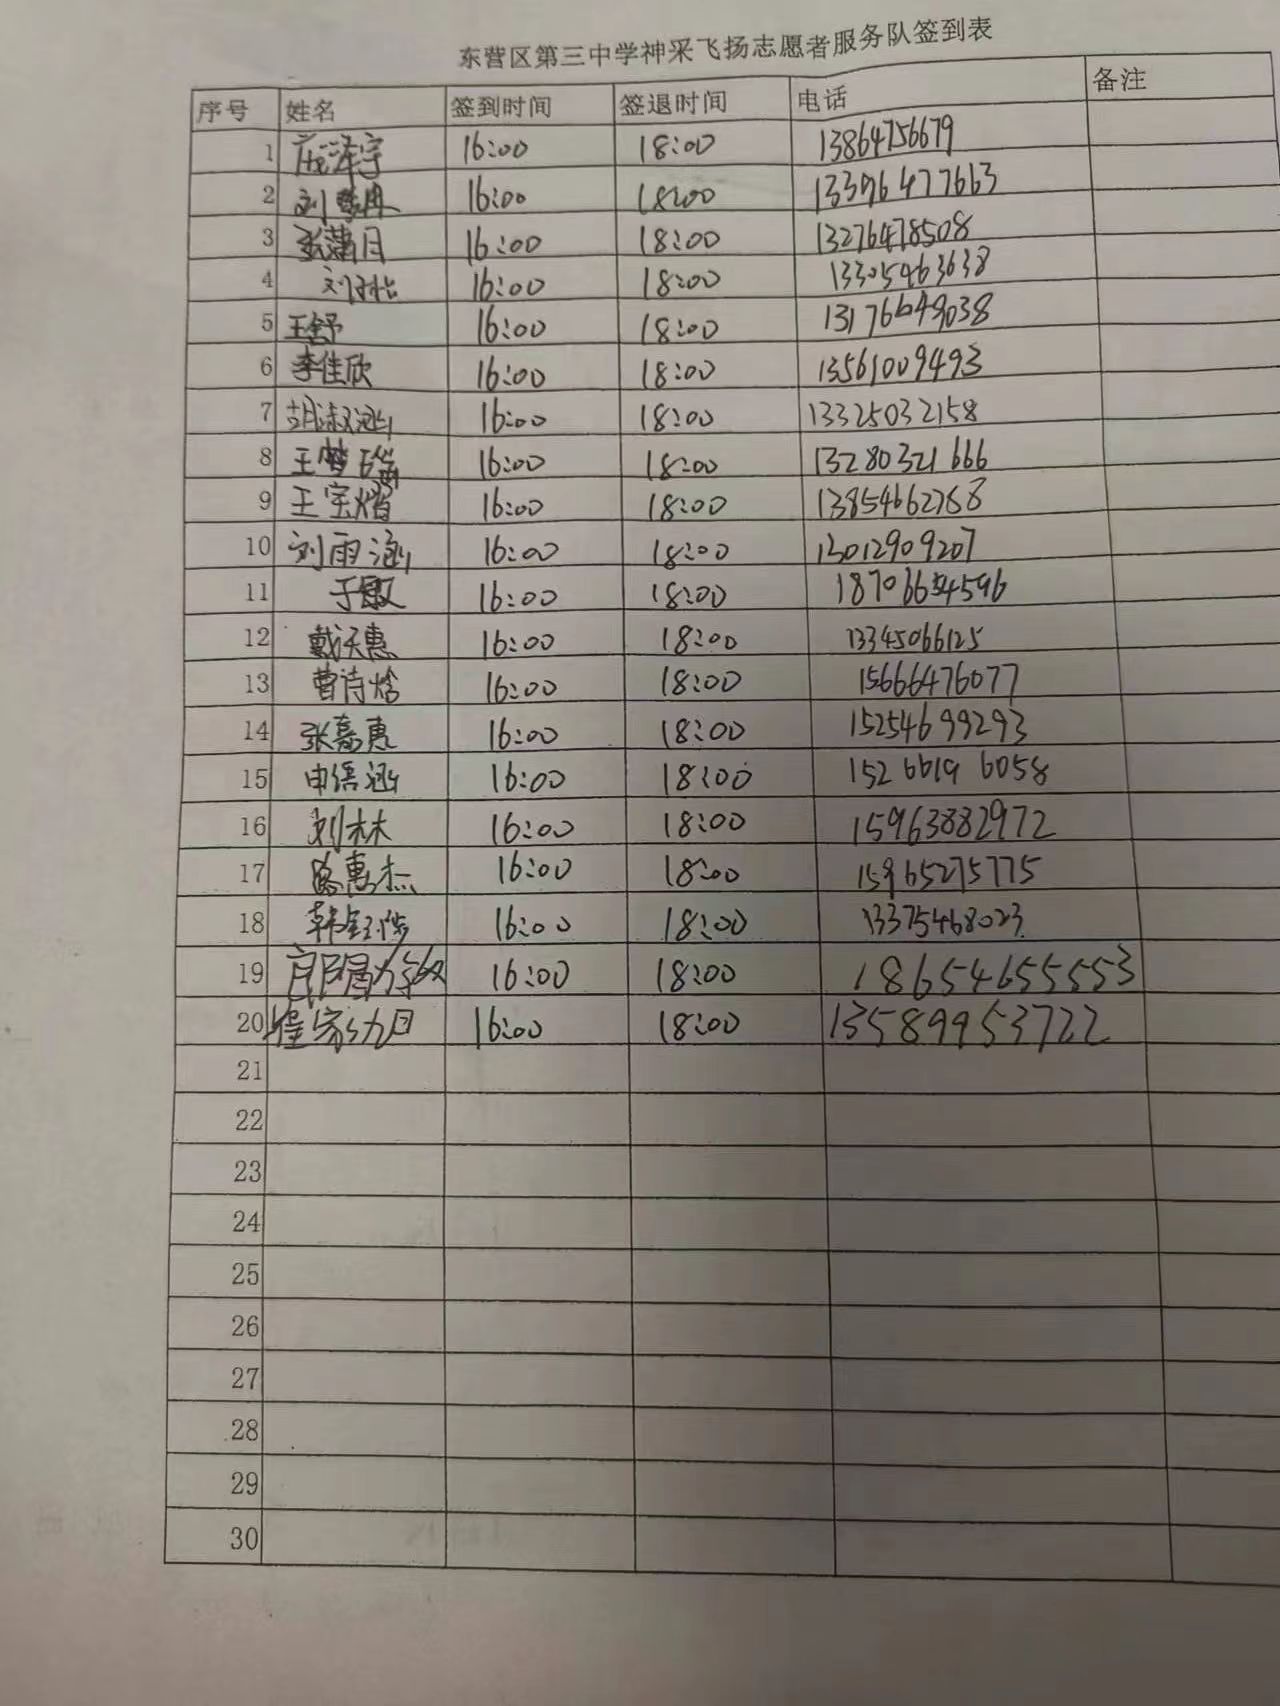 东营区第三中学神采飞扬志愿者服务队签到表
序号 姓名 签到时间 签退时间 电话 备注
1 庞泽宇 16:00 18:00 13864756679
2 刘梦冉 16:00 18:00 13396477663
3 张潇月 16:00 18:00 13276478508
4 刘 16:00 18:00 13305463638
5 王舒 16:00 18:00 13176649038
6 李佳欣 16:00 18:00 13561009493
7 胡淑涵 16:00 18:00 13325032158
8 王梦瑶 16:00 18:00 13280321666
9 王宝熠 16:00 18:00 13854662768
10 刘雨涵 16:00 18:00 13012909207
11 于 16:00 18:00 18706654596
12 戴天惠 16:00 18:00 13345066125
13 曹诗焓 16:00 18:00 15666476077
14 张嘉惠 16:00 18:00 15254699293
15 申语涵 16:00 18:00 15266196058
16 刘林林 16:00 18:00 15963882972
17 惠杰 16:00 18:00 15965275775
18 韩 16:00 18:00 13375468023
19 16:00 18:00 18654655553
20 16:00 18:00 13589953722
21
22
23
24
25
26
27
28
29
30